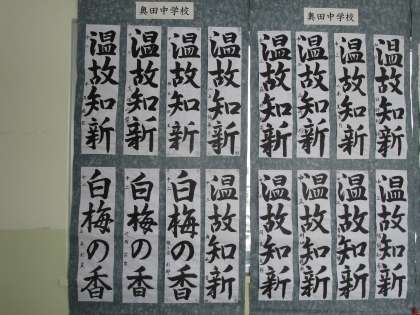 奥田中学校
奥田中学校
温故知新
温故知新
温故知新
温故知新
温故知新
温故知新
温故知新
温故知新
白梅の香
白梅の香
白梅の香
温故知新
温故知新
温故知新
温故知新
温故知新